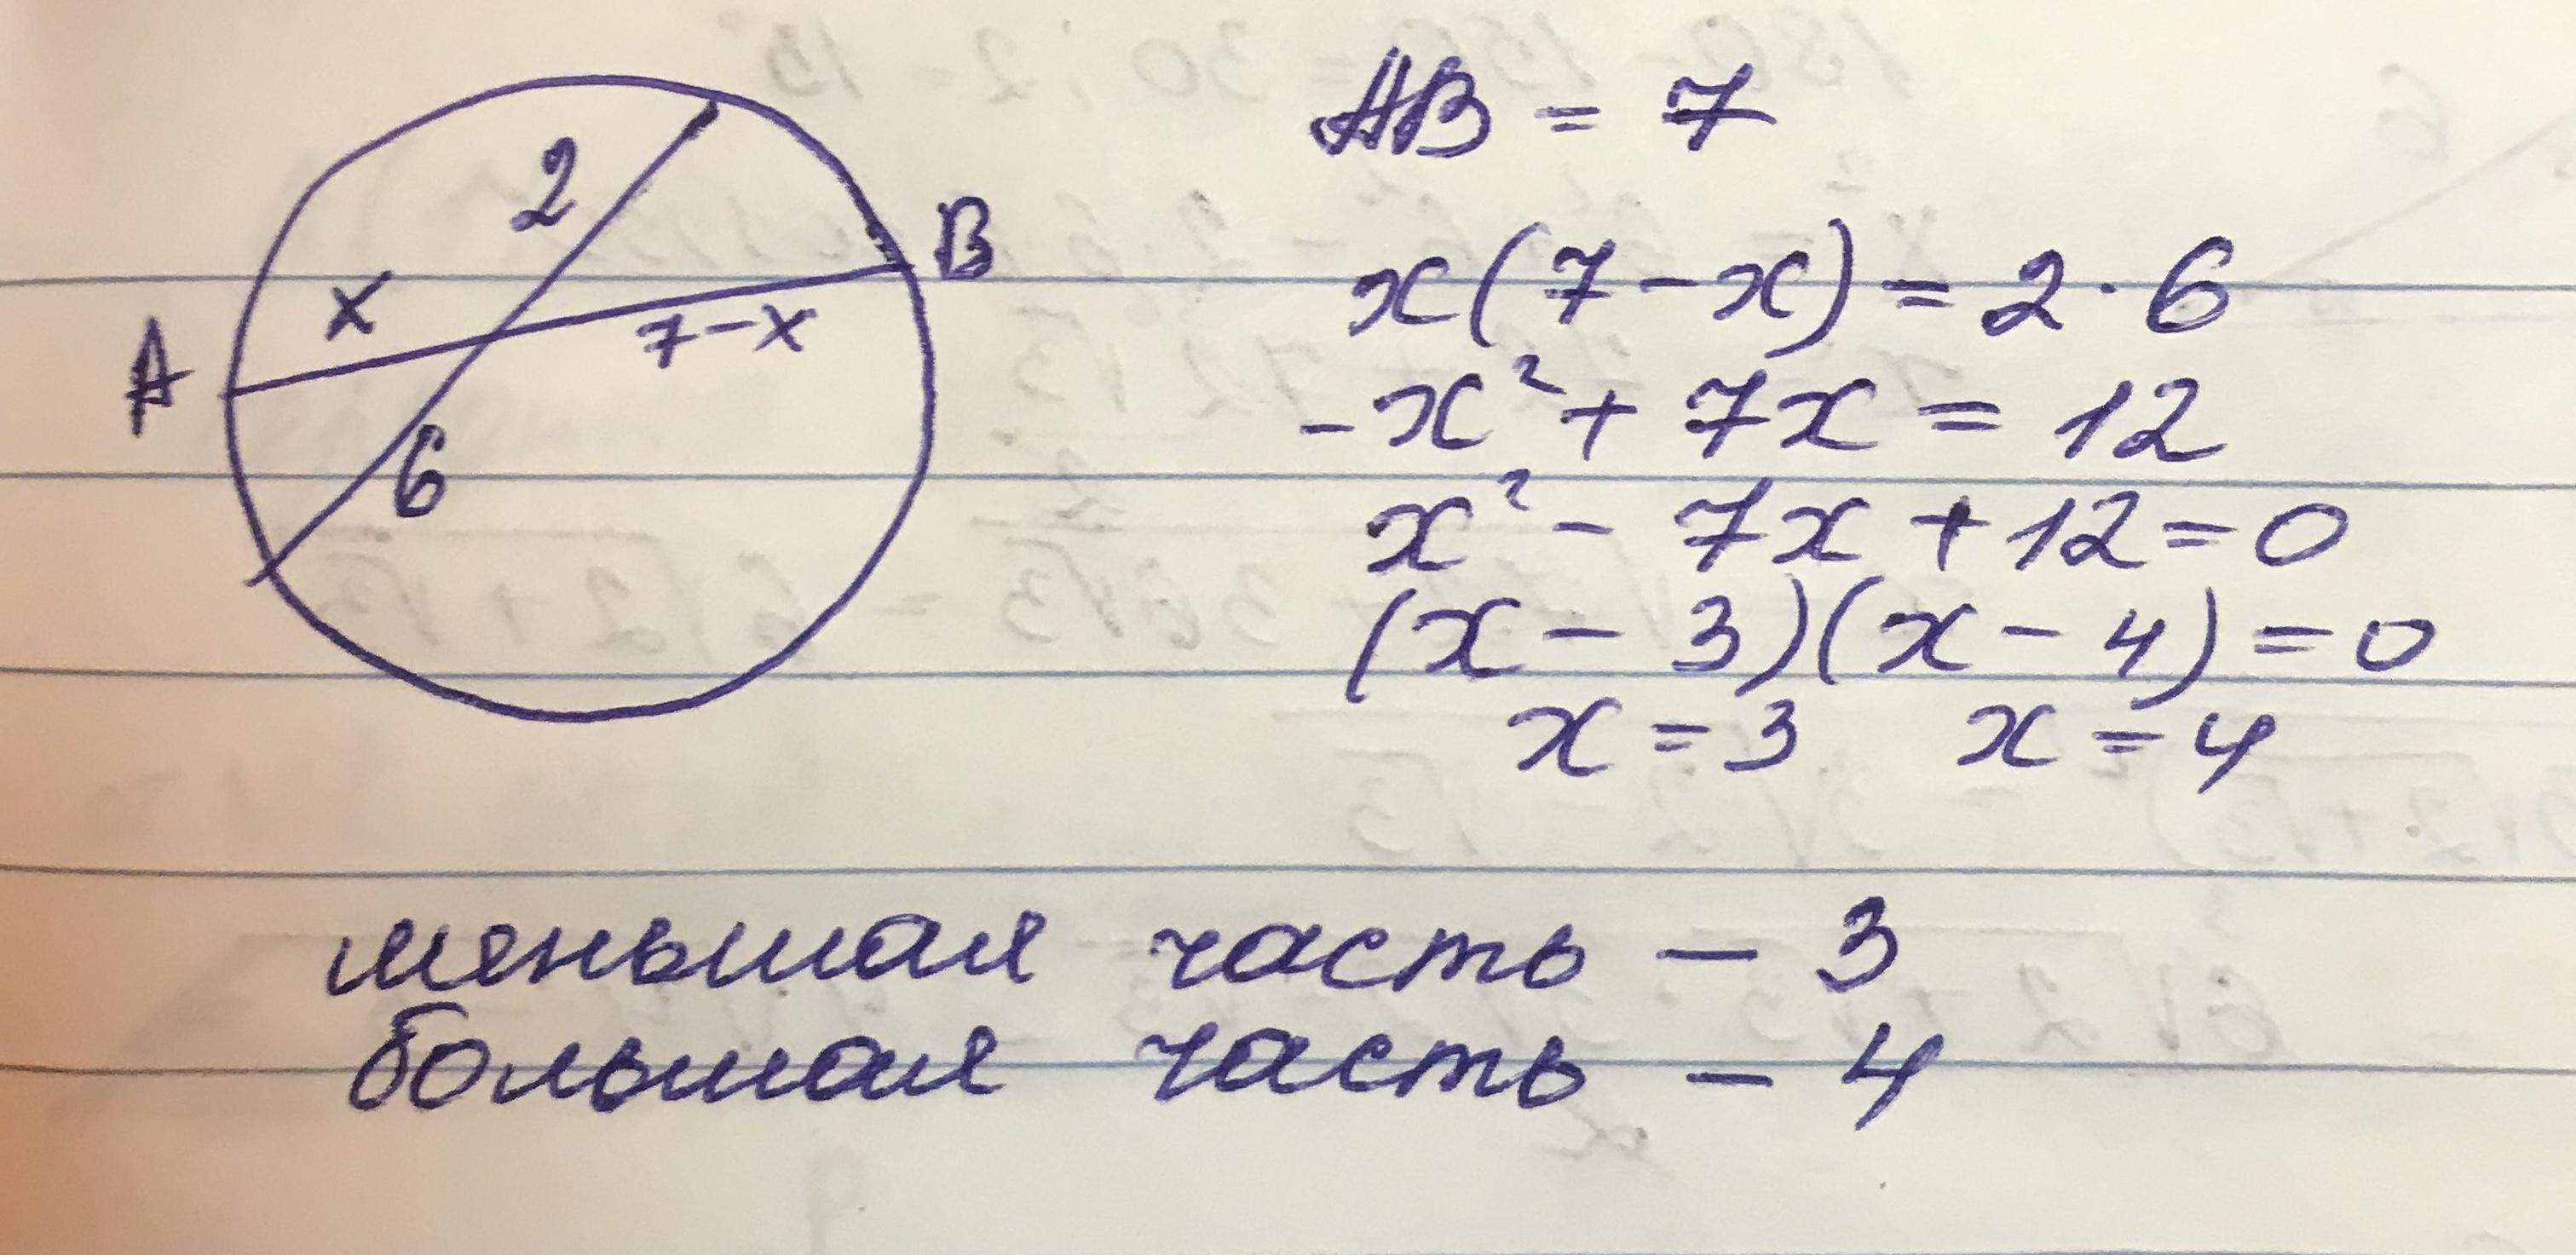 AB = 7
2
B
x
7-x
A
6
x(7-x) = 2·6
-x² + 7x = 12
x² - 7x + 12 = 0
(x - 3)(x - 4) = 0
x = 3 x = 4
меньшая часть - 3
большая часть - 4